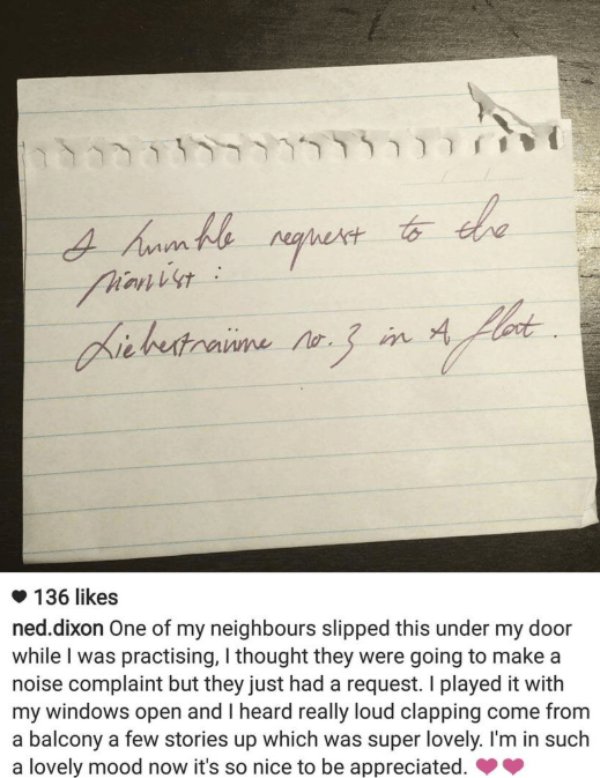 A humble request to the
pianist :
Liebesträume no. 3 in A flat.
136 likes
ned.dixon One of my neighbours slipped this under my door
while I was practising, I thought they were going to make a
noise complaint but they just had a request. I played it with
my windows open and I heard really loud clapping come from
a balcony a few stories up which was super lovely. I'm in such
a lovely mood now it's so nice to be appreciated. 💕